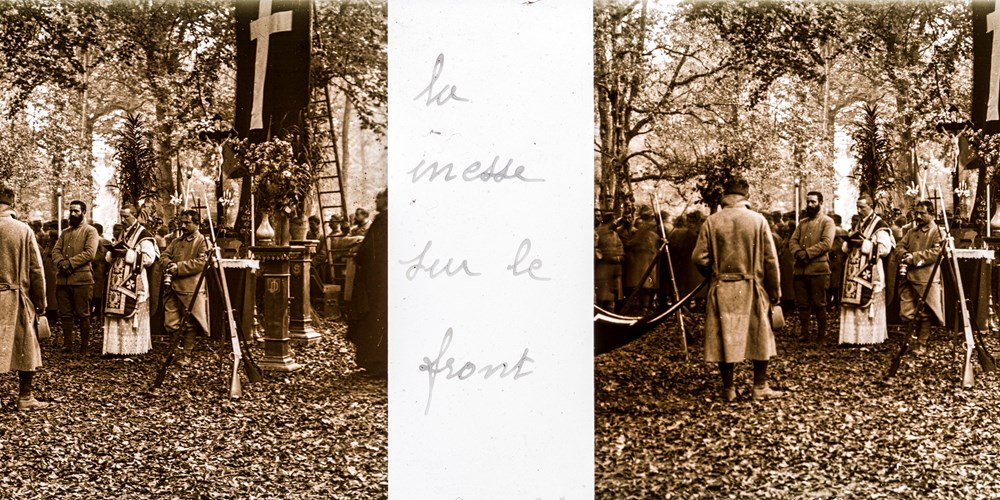 la
messe
sur le
front